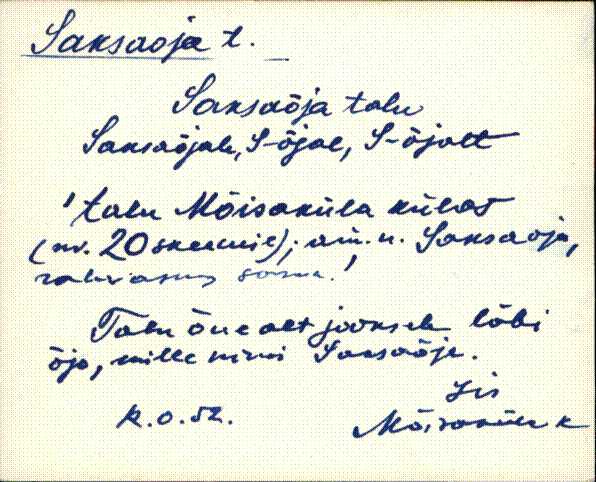 Saksaoja t.
Saksaõja talu
Saksaõjale, S-õjal, S-õjalt
'talu Mõisaküla külas
(nr. 20 skeemil); am. n. Saksaoja,
rahvasuus sama.'
Talu õue alt jookseb läbi
õja, mille nimi Saksaõja.
Jis
K.O.52. Mõisaküla k